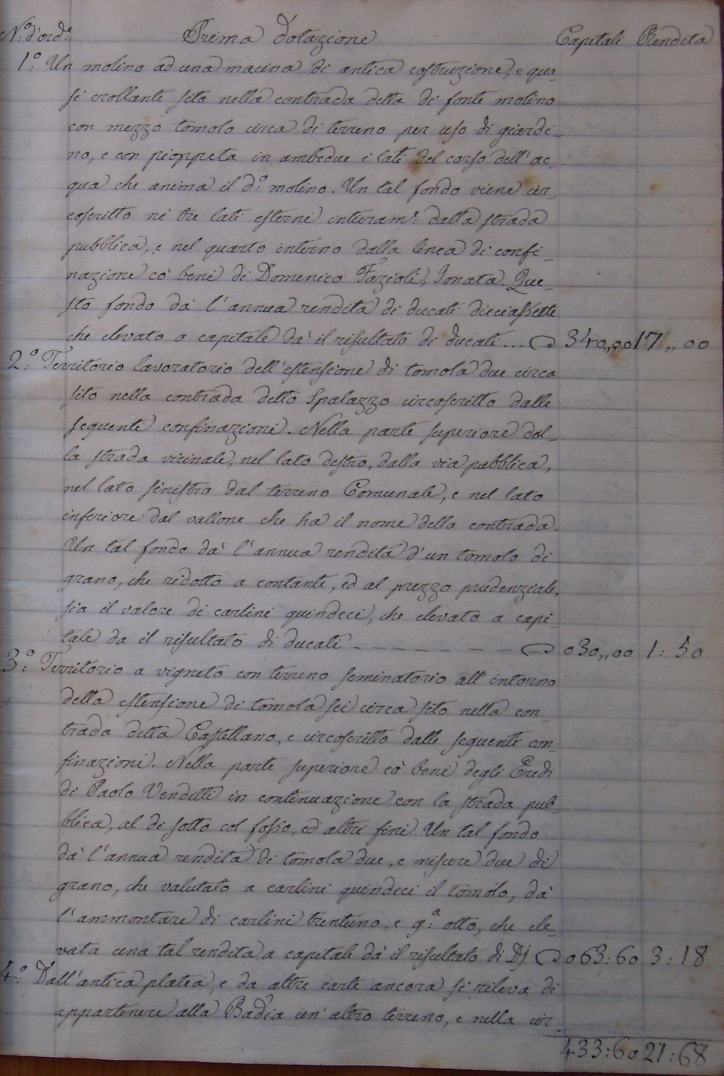 N.° d'ord.e Prima Dotazione Capitali Rendita
1.° Un molino ad una macina di antica costruzione, e qua
si crollante sito nella contrada detta di fonte molino
con mezzo tomolo circa di terreno per uso di giardi-
no, e con pioppeta in ambedue i lati del corso dell'ac-
qua che anima il d.° molino. Un tal fondo viene cir-
coscritto ne' tre lati esterni interam.e dalla strada
pubblica, e nel quarto interno dalla linea di confi-
nazione co' beni di Domenico Fazioli, Jonata. Que-
sto fondo dà l'annua rendita di ducati diciassette
che elevato a capitale dà il risultato di ducati... 340,,00 17,,00
2.° Territorio lavoratorio dell'estensione di tomola due circa
sito nella contrada detto Spalazzo circoscritto dalle
seguenti confinazioni. Nella parte superiore dal-
la strada vicinale, nel lato destro, dalla via pubblica,
nel lato sinistro dal terreno Comunale, e nel lato
inferiore dal vallone che ha il nome della contrada.
Un tal fondo dà l'annua rendita d'un tomolo di
grano, che ridotto a contante, ed al prezzo prudenziale,
sia il valore di carlini quindeci, che elevato a capi
tale da il risultato di ducati - - - - - - - 030,,00 1:50
3.° Territorio a vigneto con terreno seminatorio all'intorno
della estensione di tomola sei circa sito nella con-
trada detta Castellano, e circoscritto dalle seguenti con
finazioni. Nella parte superiore co' beni degli Eredi
di Paolo Venditti in continuazione con la strada pub-
blica, al di sotto col fosso, ed altri fini Un tal fondo
dà l'annua rendita di tomola due, e misure due di
grano, che valutato a carlini quindeci il tomolo, dà
l'ammontare di carlini trentuno, e g.a otto, che ele-
vata una tal rendita a capitale dà il risultato di Dj 063:60 3:18
4.° Dall'antica platea, e da altre carte ancora si rileva di
appartenere alla Badia un'altro terreno, e nella cir-
433:60 21:68